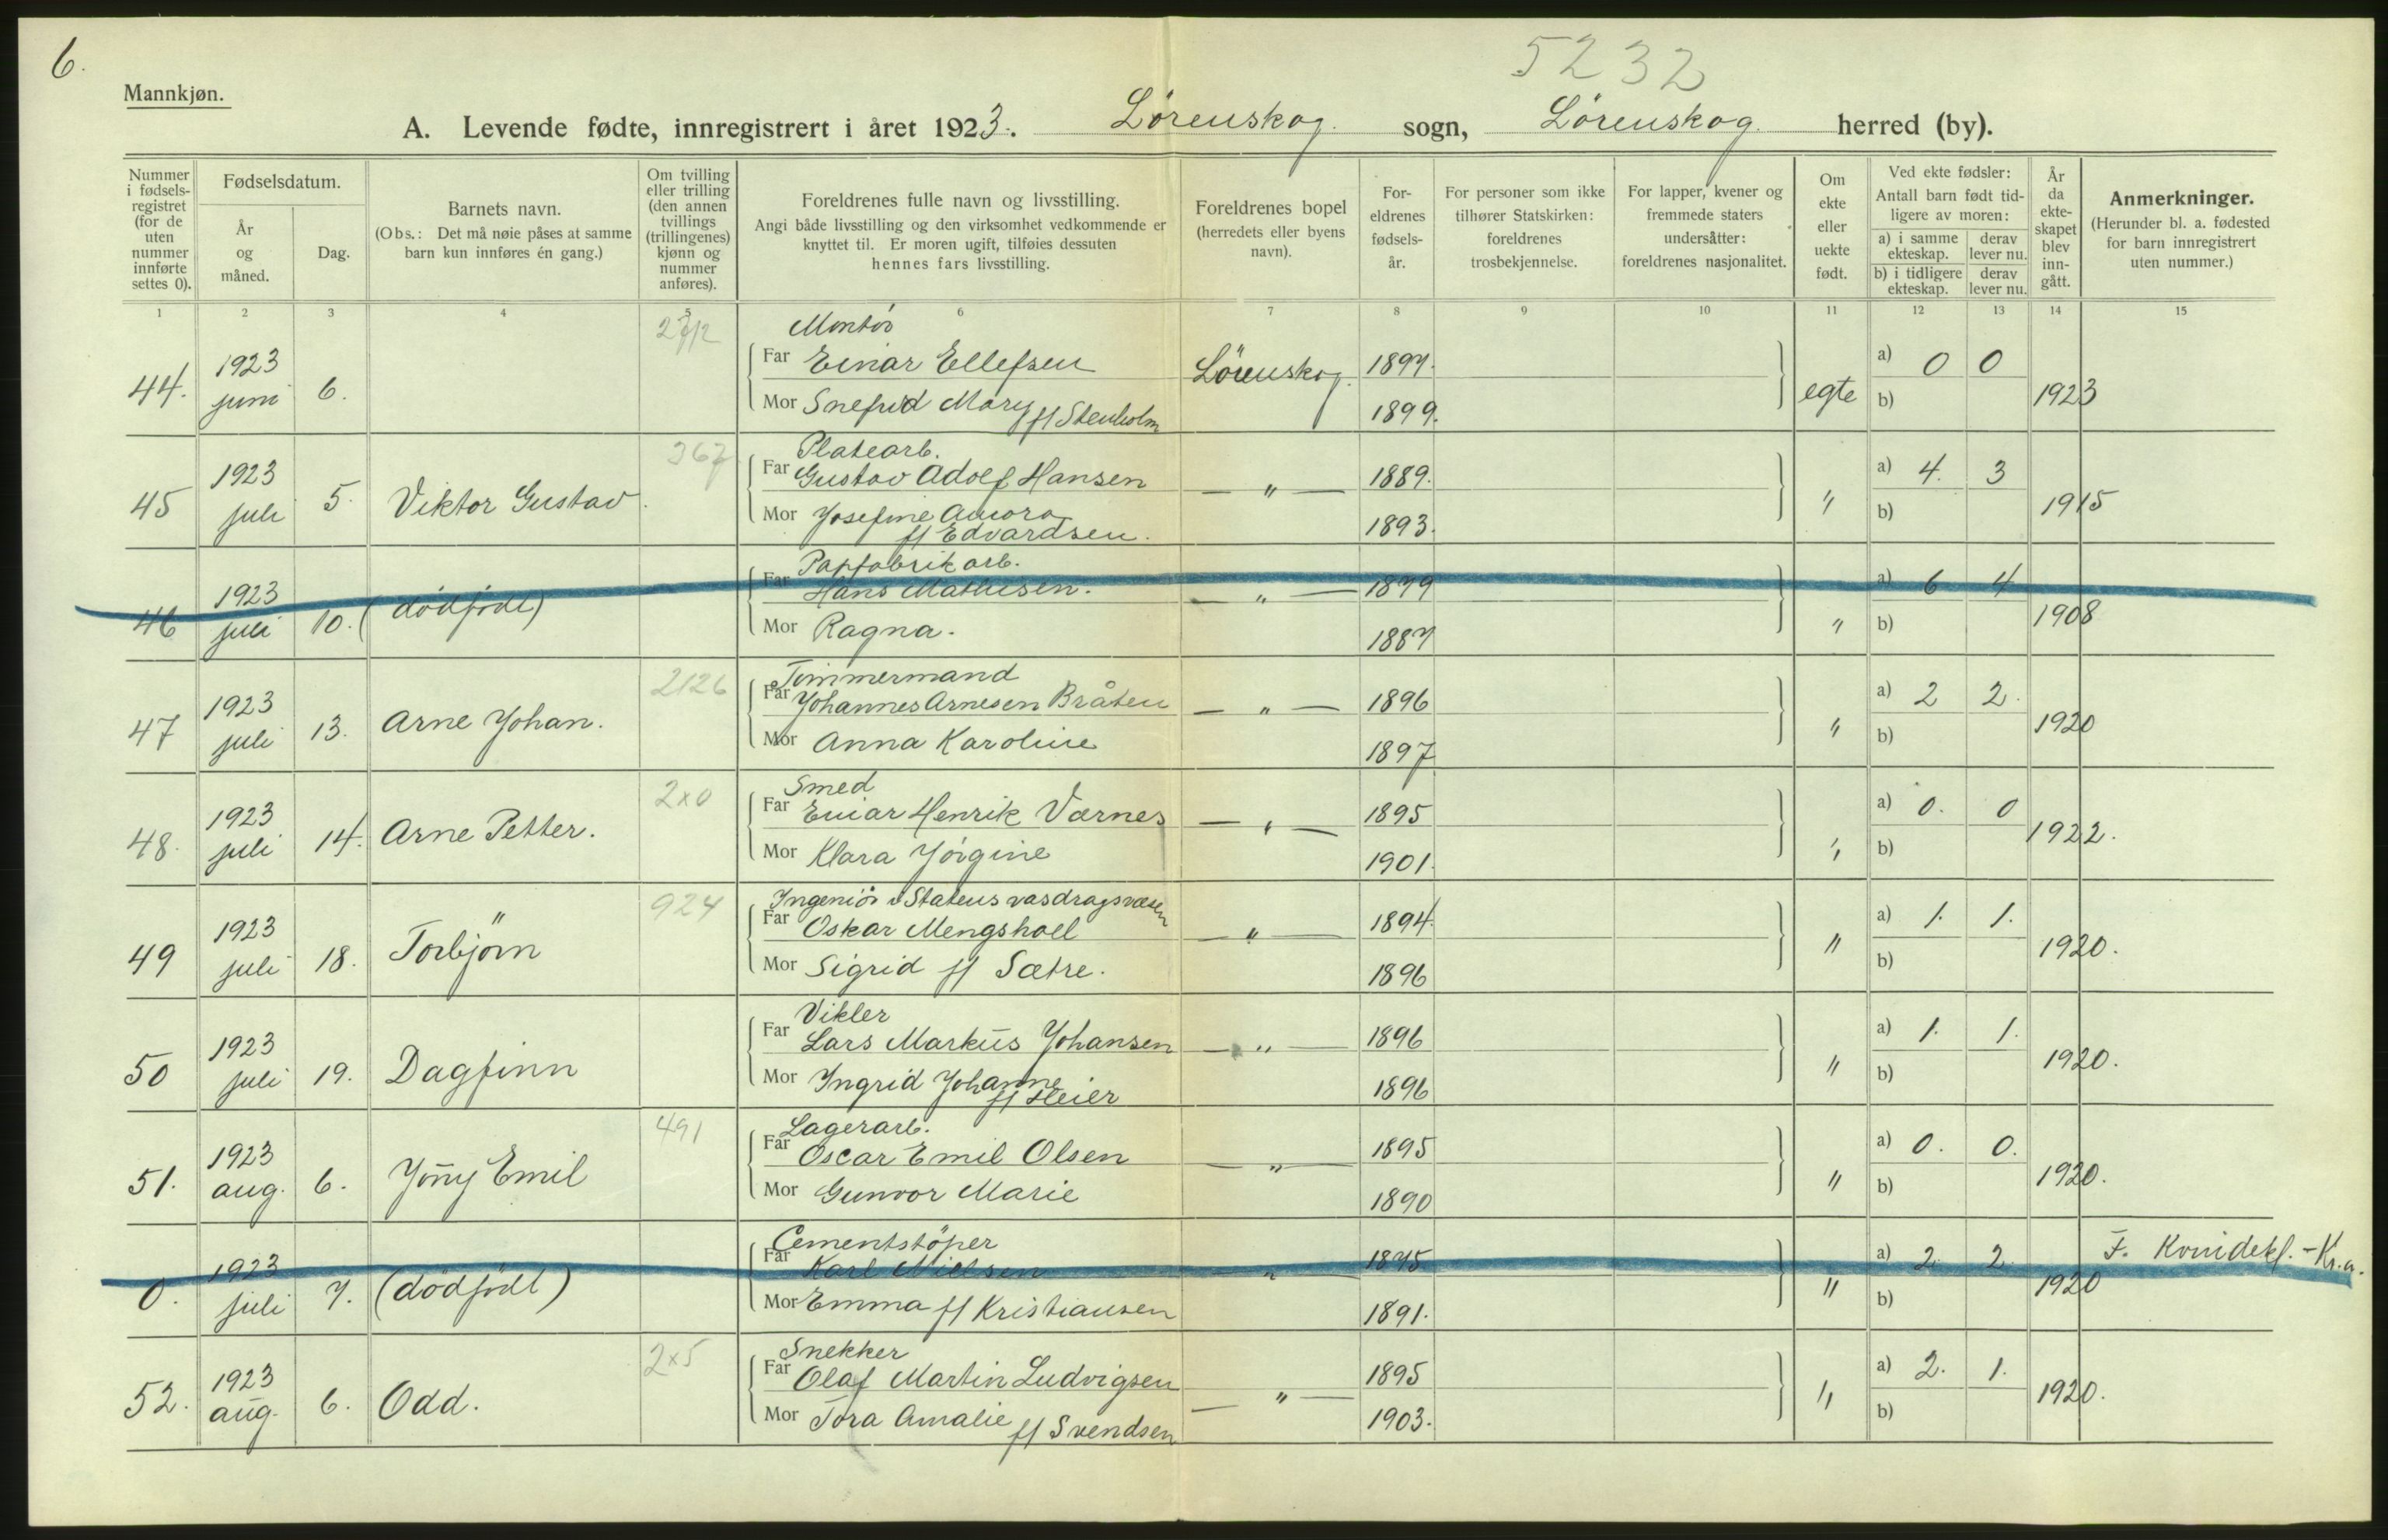 6.
5232
Mannkjøn.
A. Levende fødte, innregistrert i året 1923. Lörenskog. sogn, Lörenskog. herred (by).
Nummer i fødsels-registret (for de uten nummer innførte settes 0).
Fødselsdatum.
År og måned.
Dag.
Barnets navn.
(Obs.: Det må nøie påses at samme barn kun innføres én gang.)
Om tvilling eller trilling (den annen tvillings (trillingenes) kjønn og nummer anføres).
Foreldrenes fulle navn og livsstilling.
Angi både livsstilling og den virksomhet vedkommende er knyttet til. Er moren ugift, tilføies dessuten hennes fars livsstilling.
Foreldrenes bopel (herredets eller byens navn).
For-eldrenes fødsels-år.
For personer som ikke tilhører Statskirken: foreldrenes trosbekjennelse.
For lapper, kvener og fremmede staters undersåtter: foreldrenes nasjonalitet.
Om ekte eller uekte født.
Ved ekte fødsler:
Antall barn født tid-ligere av moren:
a) i samme ekteskap. derav lever nu.
b) i tidligere ekteskap. derav lever nu.
År da ekte-skapet blev inn-gått.
Anmerkninger.
(Herunder bl. a. fødested for barn innregistrert uten nummer.)
1 2 3 4 5 6 7 8 9 10 11 12 13 14 15
Montör
44. 1923 juni 6. Far Einar Ellefsen Lörenskog. 1897. egte a) 0 0 1923
Mor Snefrid Mary ff Stenholm 1899. b)
367 Platearb.
45 1923 juli 5. Viktor Gustav. Far Gustav Adolf Hansen — " — 1889. " a) 4. 3 1915
Mor Josefine Aurora ff Edvardsen. 1893. b)
Papfabrik arb.
46 1923 juli 10. (dödfödt) Far Hans Mathisen. — " — 1879 " a) 6 4 1908
Mor Ragna. 1887 b)
2126 Tömmermand
47 1923 juli 13. Arne Johan. Far Johannes Arnesen Bråten — " — 1896 " a) 2 2. 1920
Mor Anna Karoline 1897 b)
2x0 Smed
48. 1923 juli 14. Arne Petter. Far Einar Henrik Værnes — " — 1895 " a) 0. 0 1922.
Mor Klara Jörgine 1901. b)
924 Ingeniör v Statens vasdragsvæsen
49 1923 juli 18. Torbjörn Far Oskar Mengshoel — " — 1894. " a) 1. 1. 1920.
Mor Sigrid ff Sætre. 1896 b)
Vikler
50 1923 juli 19. Dagfinn Far Lars Markus Johansen — " — 1896 " a) 1. 1. 1920.
Mor Ingrid Johanne ff Heier 1896 b)
491 Lagerarb.
51. 1923 aug. 6. Jony Emil Far Oscar Emil Olsen — " — 1895 " a) 0. 0. 1920.
Mor Gunvor Marie 1890 b)
Cementstöper
0. 1923 juli 7. (dödfödt) Far Karl Nielsen " 1895 " a) 2. 2. 1920 F. Kvindekl. - Kr.a.
Mor Emma ff Kristiansen 1891. b)
2x5 Snekker
52. 1923 aug. 6. Odd. Far Olaf Martin Ludvigsen — " — 1895 " a) 2. 1. 1920.
Mor Tora Amalie ff Svendsen 1903. b)